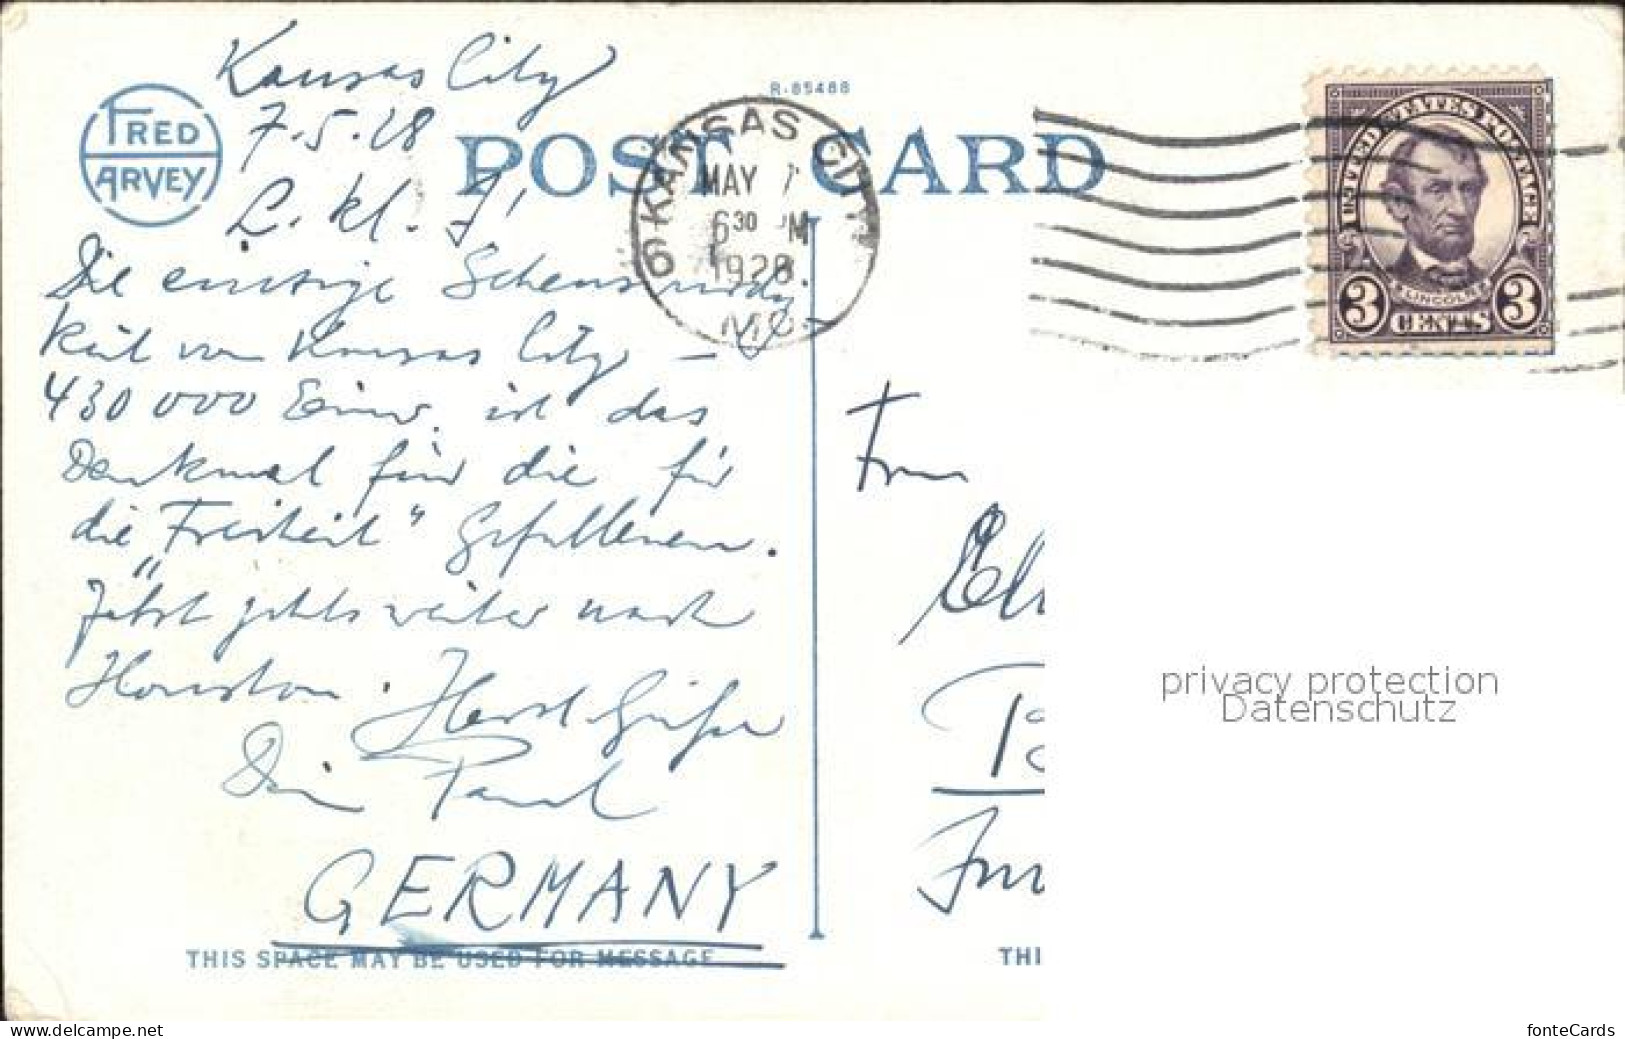 Kansas City
7.5.28
L. kl. J!
FRED
HARVEY
R-85488
POST CARD
KANSAS CITY
MAY 7
6 30 PM
1928
MO.
6
UNITED STATES POSTAGE
LINCOLN
3 CENTS 3
Die einzige Sehenswürdig-
keit von Kansas City –
430 000 Einw. ist das
Denkmal für die für
die „Freiheit“ Gefallenen.
Jetzt gehts weiter nach
Houston. Herzl Grüße
Dein Paul
GERMANY
THIS SPACE MAY BE USED FOR MESSAGE
Frau
THI
privacy protection
Datenschutz
www.delcampe.net
fonteCards